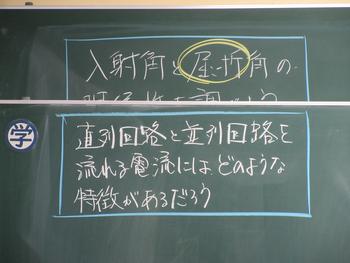 入射角と屈折角の
学
直列回路と並列回路を
流れる電流には、どのような
特徴があるだろう